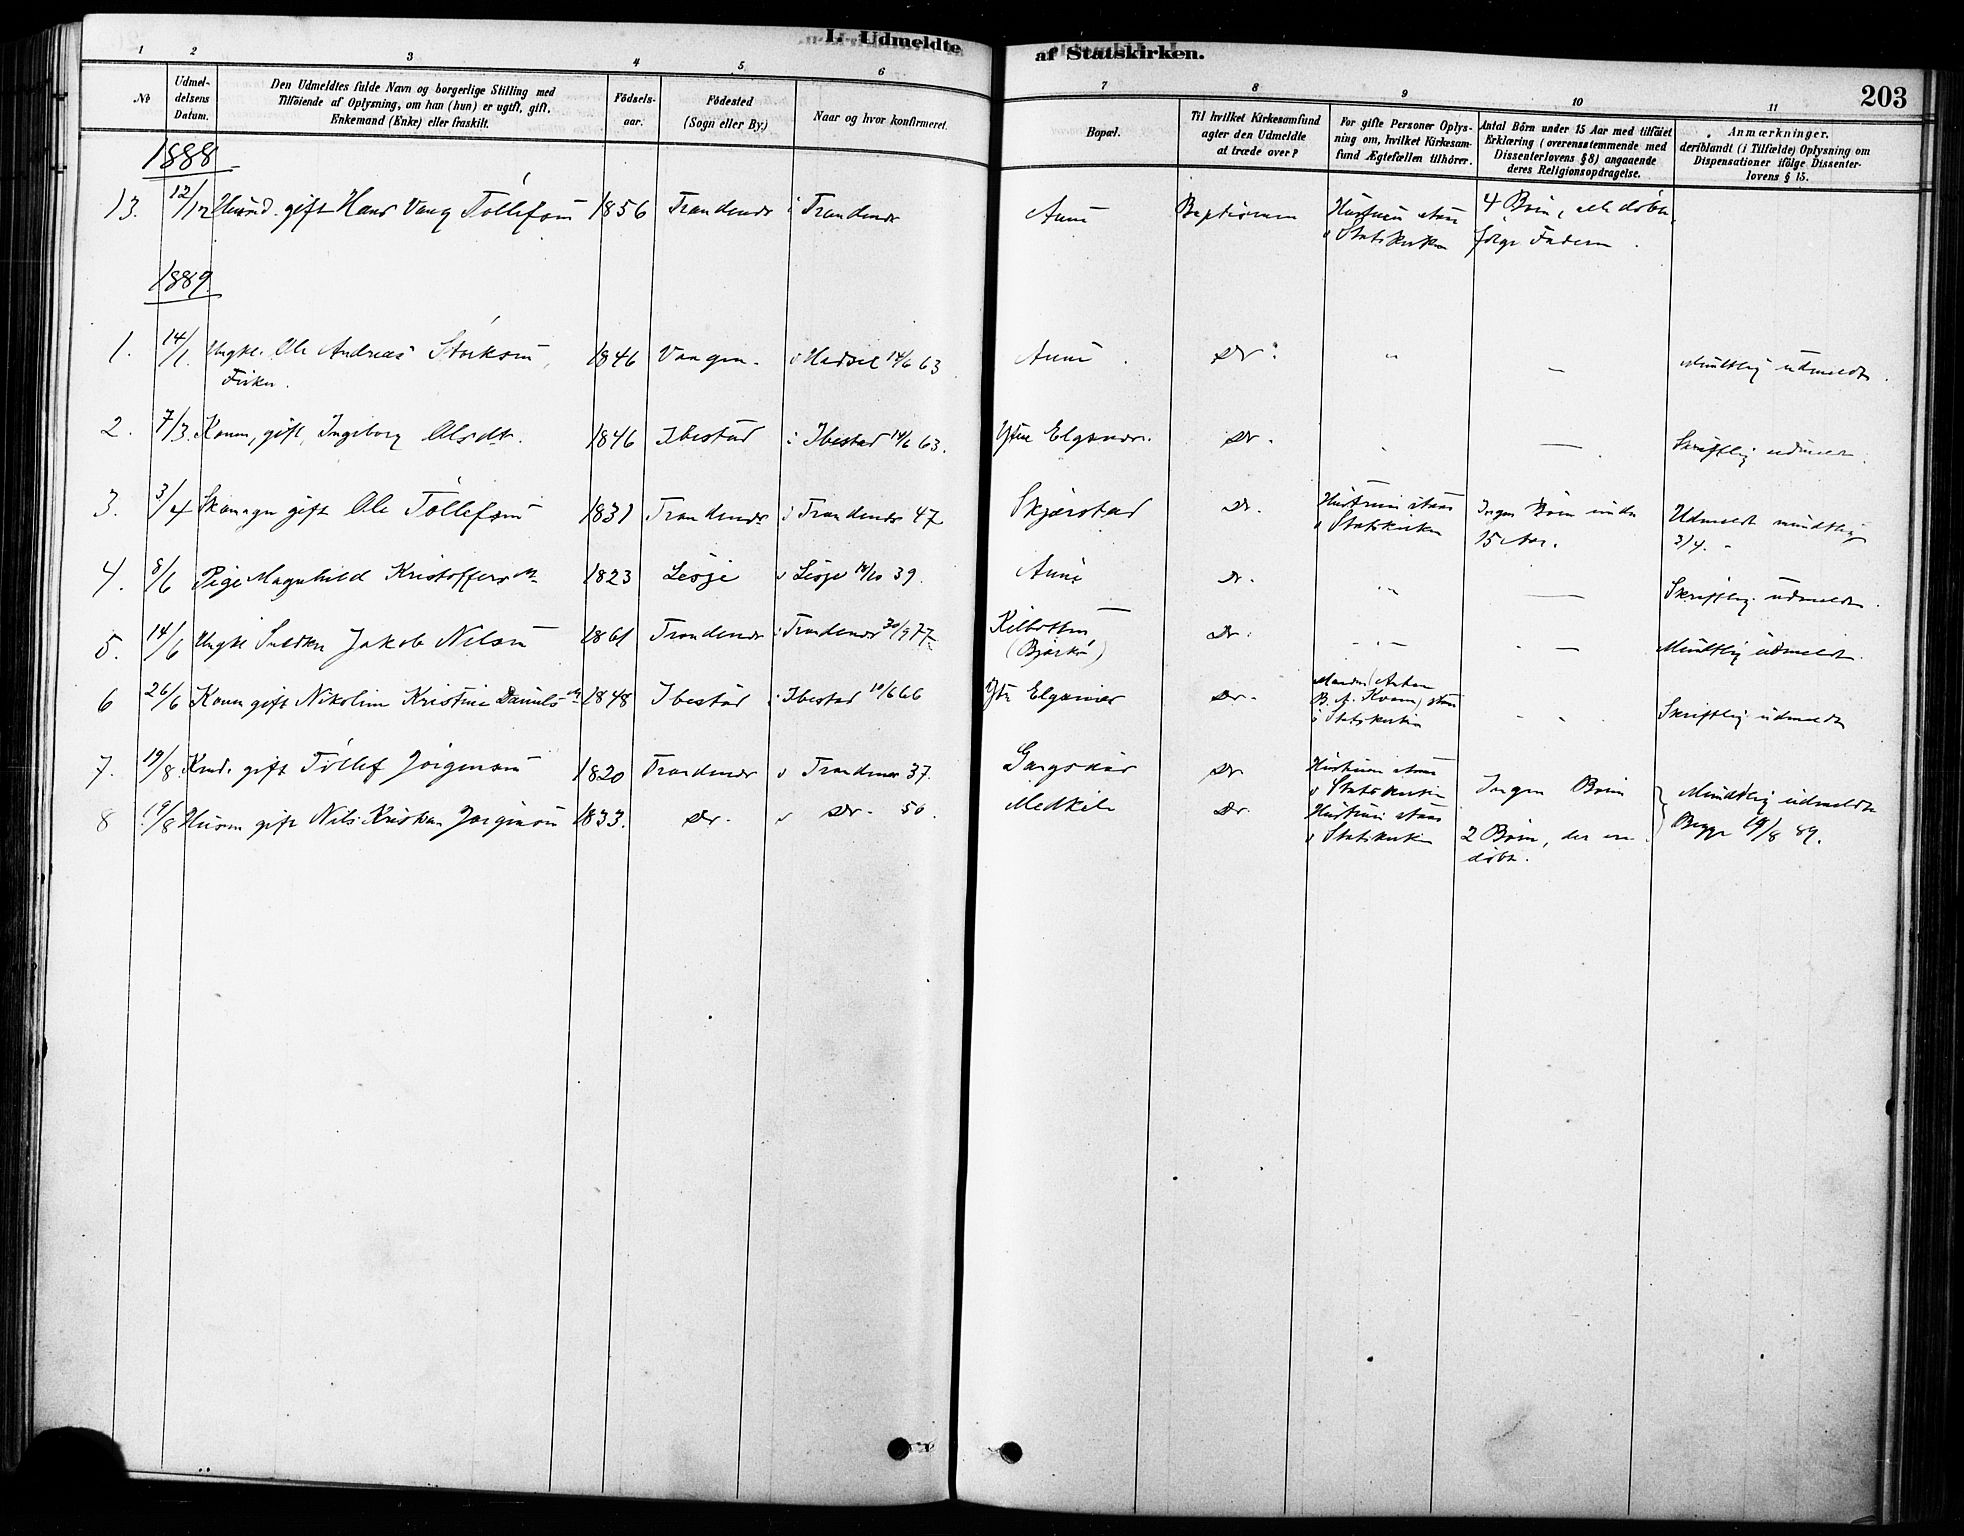 I. Udmeldte af Statskirken.
203
1 2 3 4 5 6 7 8 9 10 11
No
Udmeldelsens Datum.
Den Udmeldtes fulde Navn og borgerlige Stilling med
Tilföiende af Oplysning, om han (hun) er ugift, gift,
Enkemand (Enke) eller fraskilt.
Födselsaar.
Födested
(Sogn eller By.)
Naar og hvor konfirmeret.
Bopæl.
Til hvilket Kirkesamfund
agter den Udmeldte
at træde over?
For gifte Personer Oplysning om, hvilket Kirkesamfund Ægtefællen tilhörer.
Antal Börn under 15 Aar med tilföiet
Erklæring (overensstemmende med
Dissenterlovens § 8) angaaende
deres Religionsopdragelse.
Anmærkninger,
deriblandt (i Tilfælde) Oplysning om
Dispensationer ifölge Dissenterlovens § 15.
1888
13. 12/12 gift Hans Vang Tollefsen 1856 Trondenes i Trondenes Aune Baptisterne Hustruen i Statskirken 4 Börn, alle döbte, følge Faderen.
1889
1. 14/1. Ungk. Ole Andreas 1846 Vaagan. i Hadsel 14/6 63 Aune. Do. " — Mundtlig udmeldt.
Fisker.
2. 7/3. Kone, gift, Ingeborg Olsdtr. 1846 Ibestad i Ibestad 14/6 63. Ytre Elgsnes. Do. — Skriftlig udmeldt.
3. 3/4 gift Ole Tollefsen 1831 Trondenes i Trondenes 47 Skjærstad Do. Hustruen i Statskirken Ingen Börn under 15 Aar. Udmeldt mundtlig 3/4.
4. 8/6 Pige Magnhild Kristoffersdtr 1823 Lesje i Lesje 39. Aune Do. — Skriftlig udmeldt.
5. 14/6 Ungk Jakob Nilsen 1861 Trondenes i Trondenes 30/9 77 Kilbotten, (Bjarkö) Do. — — Mundtlig udmeldt.
6 26/6 Kone gift Nikoline Kristine Daniels 1848 Ibestad i Ibestad 10/6 66 Ytre Elgsnes Do. Manden (Anton B. A. Kvam) i Statskirken Skriftlig udmeldt
7. 19/8 gift Tollef Jörgensen 1820 Trondenes i Trondenes 37. Gangsaas Do Hustruen i Statskirken Ingen Börn
Mundtlig udmeldt
Begge 19/8 89.
8 19/8 gift Nils Kristian Jörgensen 1833. Do. i Do. 50. Medkila Do Hustruen i Statskirken 2 Börn, der ere döbte.